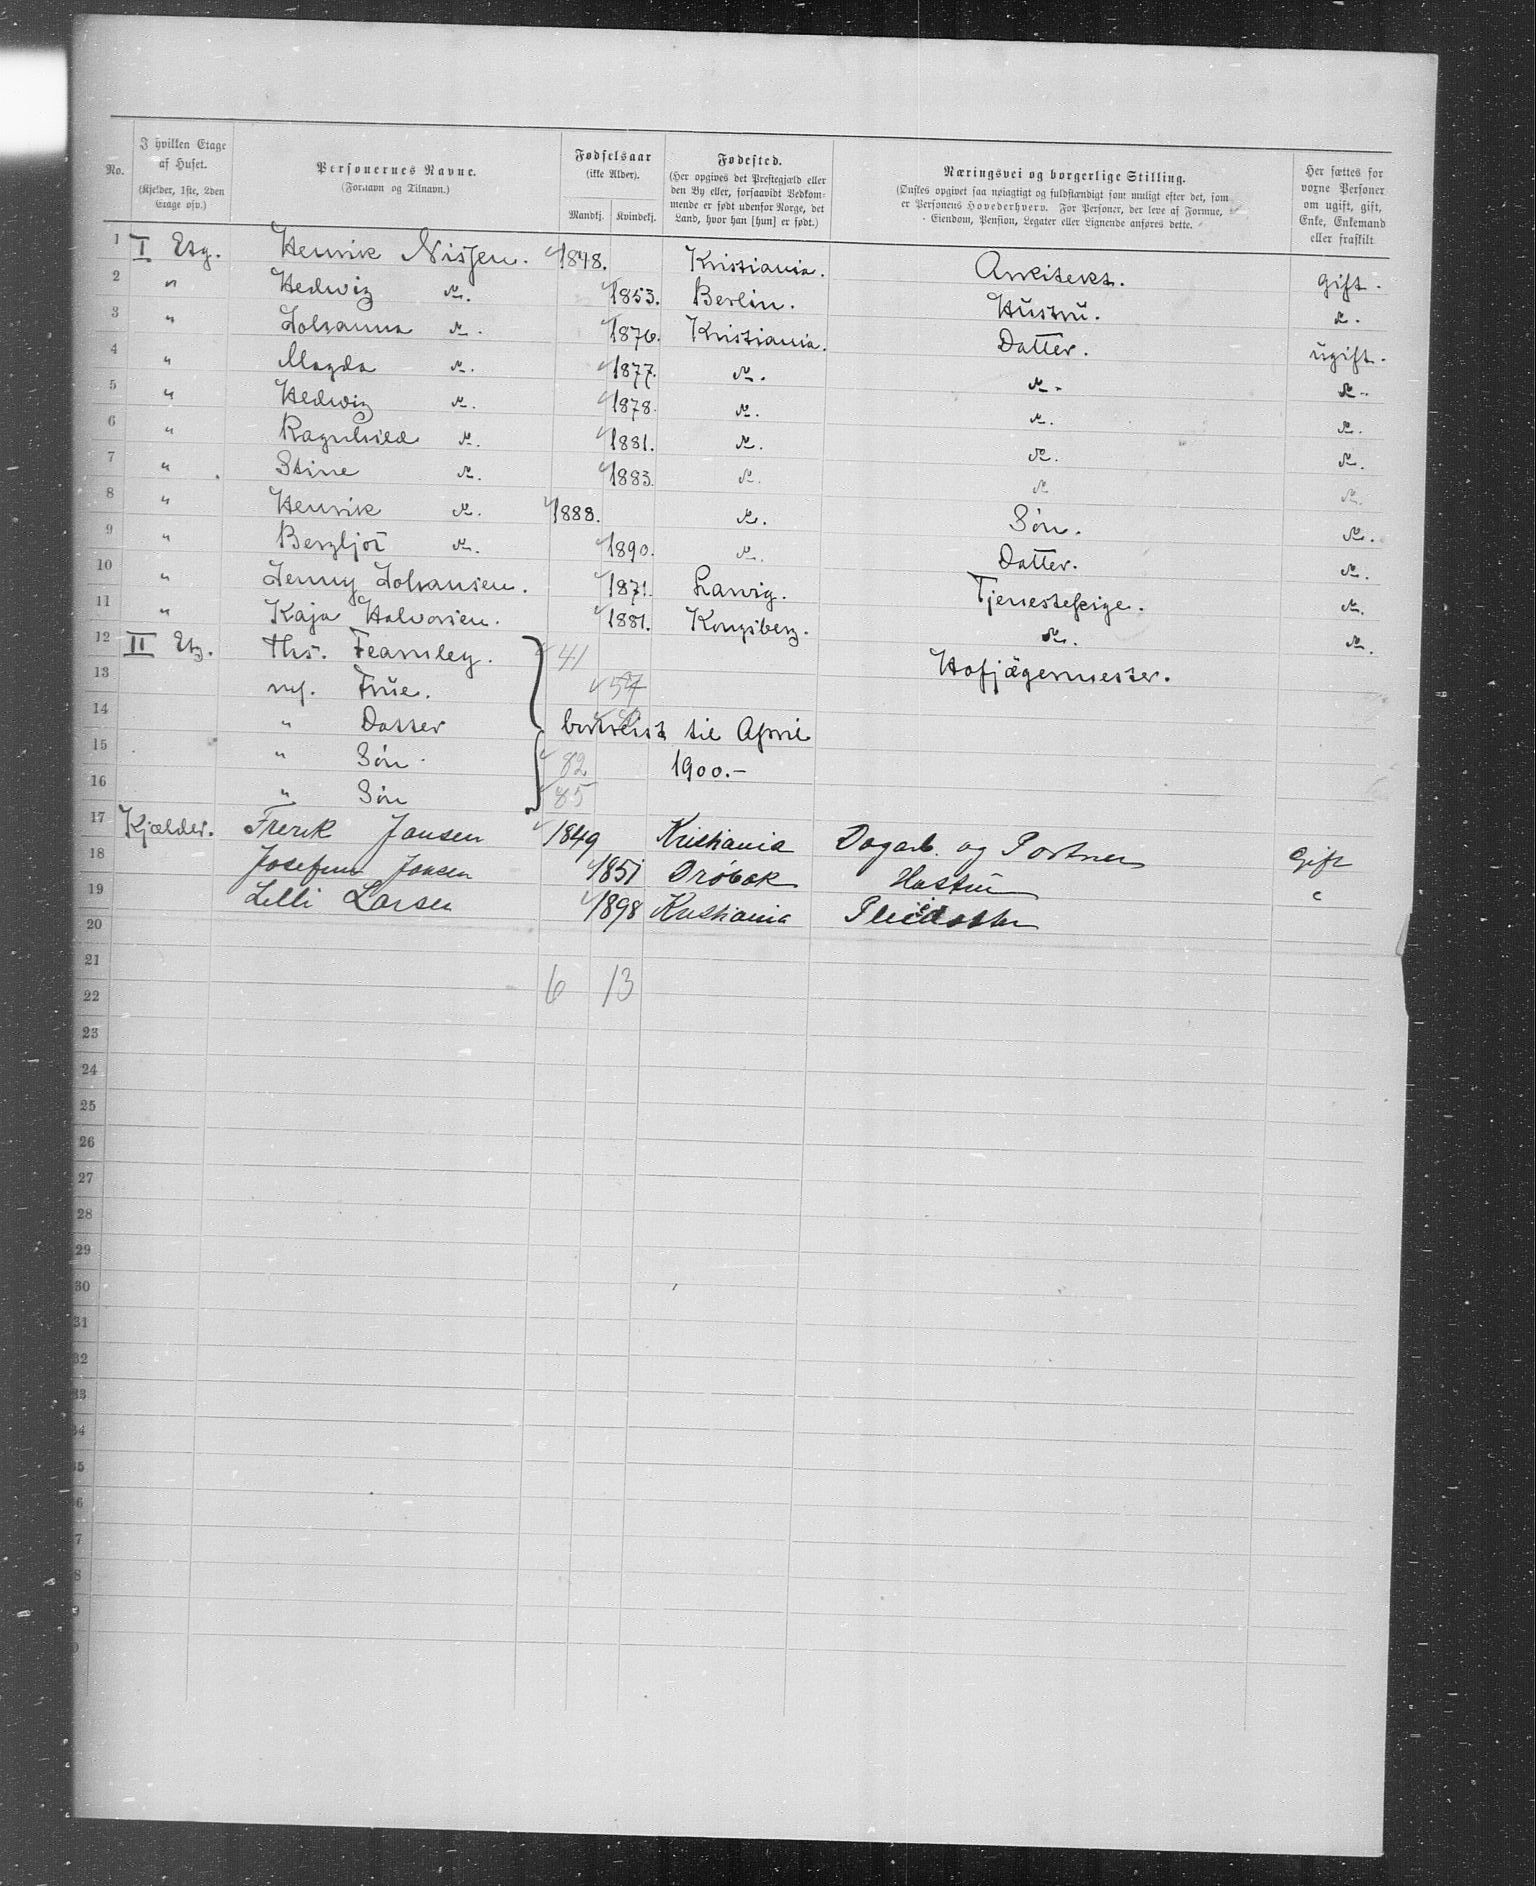 No. | I hvilken Etage af Huset. (Kjelder, 1ste, 2den Etage osv.) | Personernes Navne. (Fornavn og Tilnavn.) | Fødselsaar (ikke Alder). Mandkj. Kvindekj. | Fødested. (Her opgives det Præstegjæld eller den By eller, forsaavidt Vedkommende er født udenfor Norge, det Land, hvor han [hun] er født.) | Næringsvei og borgerlige Stilling. (Ønskes opgivet saa nøiagtigt og fuldstændigt som muligt efter det, som er Personens Hovederhverv. For Personer, der leve af Formue, Eiendom, Pension, Legater eller Lignende anføres dette. | Her sættes for voxne Personer om ugift, gift, Enke, Enkemand eller fraskilt
1 I Etg. Henrik Nissen. 1848. Kristiania. Arkitekt. gift.
2 " Hedwig do. 1853. Berlin. Hustru. do.
3 " Johanna do. 1876. Kristiania. Datter. ugift.
4 " Magda do. 1877. do. do. do.
5 " Hedwig do. 1878. do. do. do.
6 " Ragnhild do. 1881. do. do. do.
7 " Stine do. 1883. do. do do.
8 " Henrik do. 1888. do. Søn. do.
9 " Bergljot do. 1890. do. Datter. do.
10 " Jenny Johansen. 1871. Larvig. Tjenestepige. do.
11 " Kaja Halvorsen. 1881. Kongsberg. do. do.
12 II Etg. Ths. Fearnley. 41 Hofjægermester.
13 m/. Frue. 57
14 " Datter bortreist til April
15 " Søn. 82 1900.-
16 " Søn 85
17 Kjælder. Frerik Jansen 1849 Kristiania Dagarb. og Portner Gift
18 Josefine Jansen 1851 Drøbak Hustru
19 Lilli Larsen 1898 Kristiania Pleiedatter
20
21
22 6 13
23
24
25
26
27
28
29
30
31
32
33
34
35
36
7
8
9
0